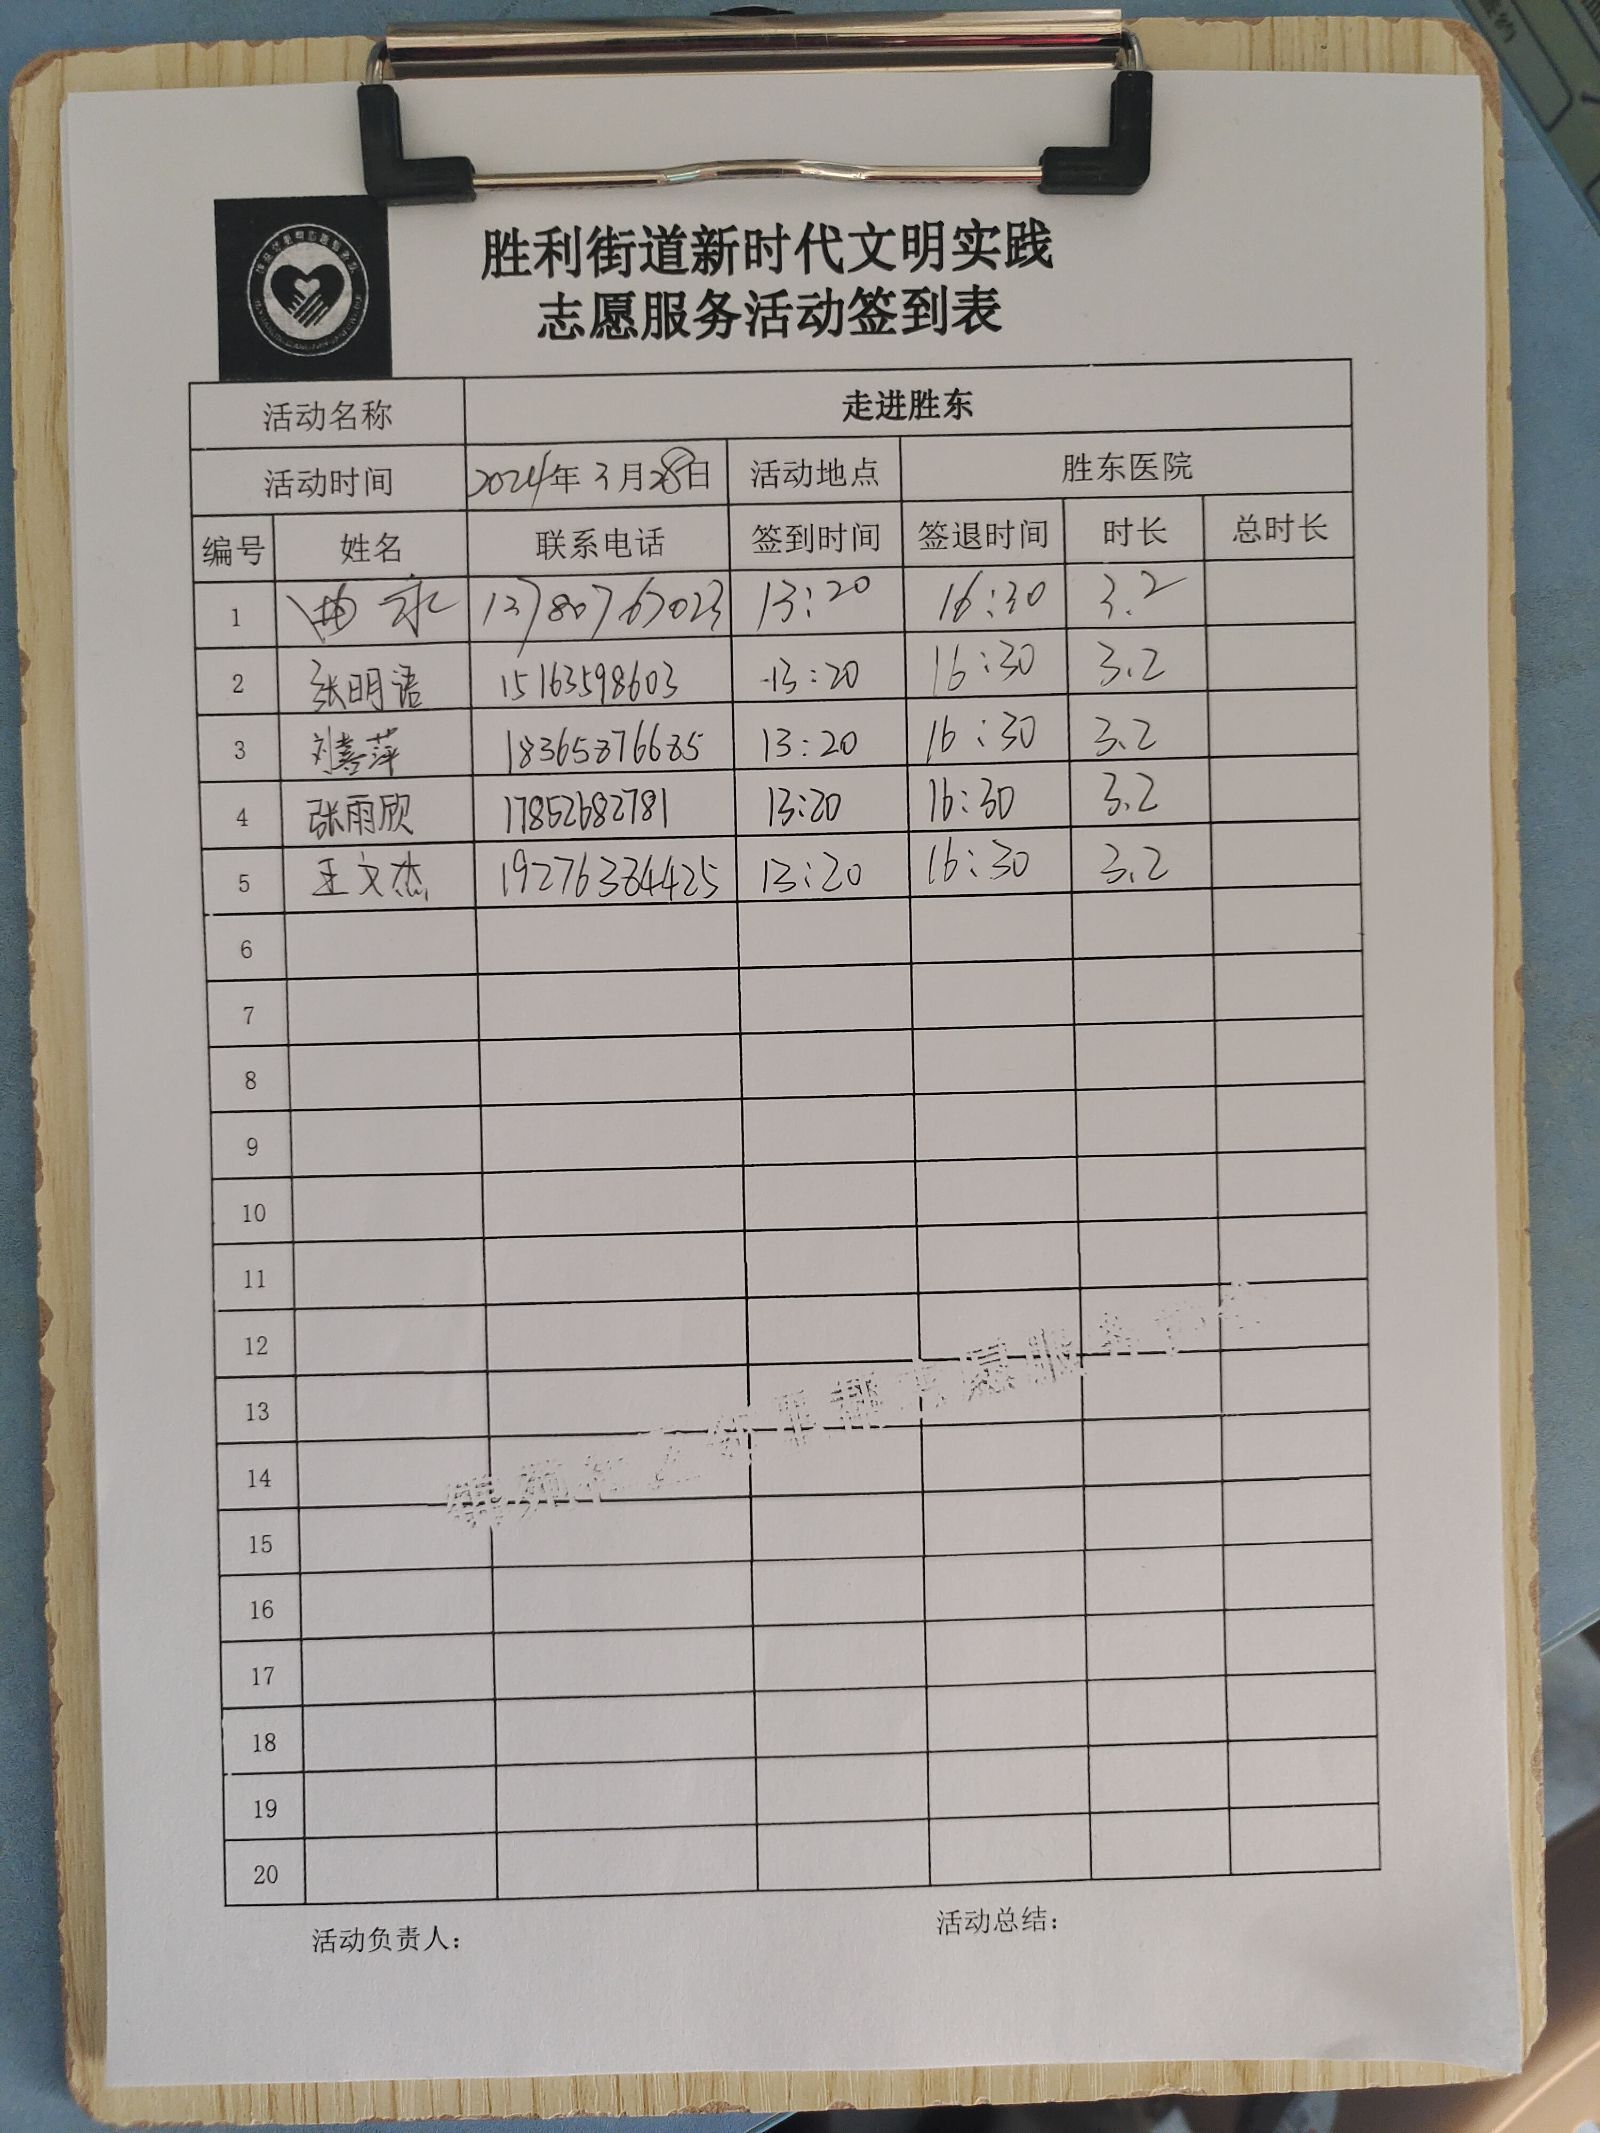 胜利街道新时代文明实践
志愿服务活动签到表
活动名称 走进胜东
活动时间 2024年3月28日 活动地点 胜东医院
编号 姓名 联系电话 签到时间 签退时间 时长 总时长
1 曲永 13780767023 13:20 16:30 3.2
2 张明语 15163598603 13:20 16:30 3.2
3 刘嘉萍 18365876685 13:20 16:30 3.2
4 张雨欣 17852682781 13:20 16:30 3.2
5 王文杰 19276384425 13:20 16:30 3.2
6
7
8
9
10
11
12
13
14
15
16
17
18
19
20
活动负责人： 活动总结：